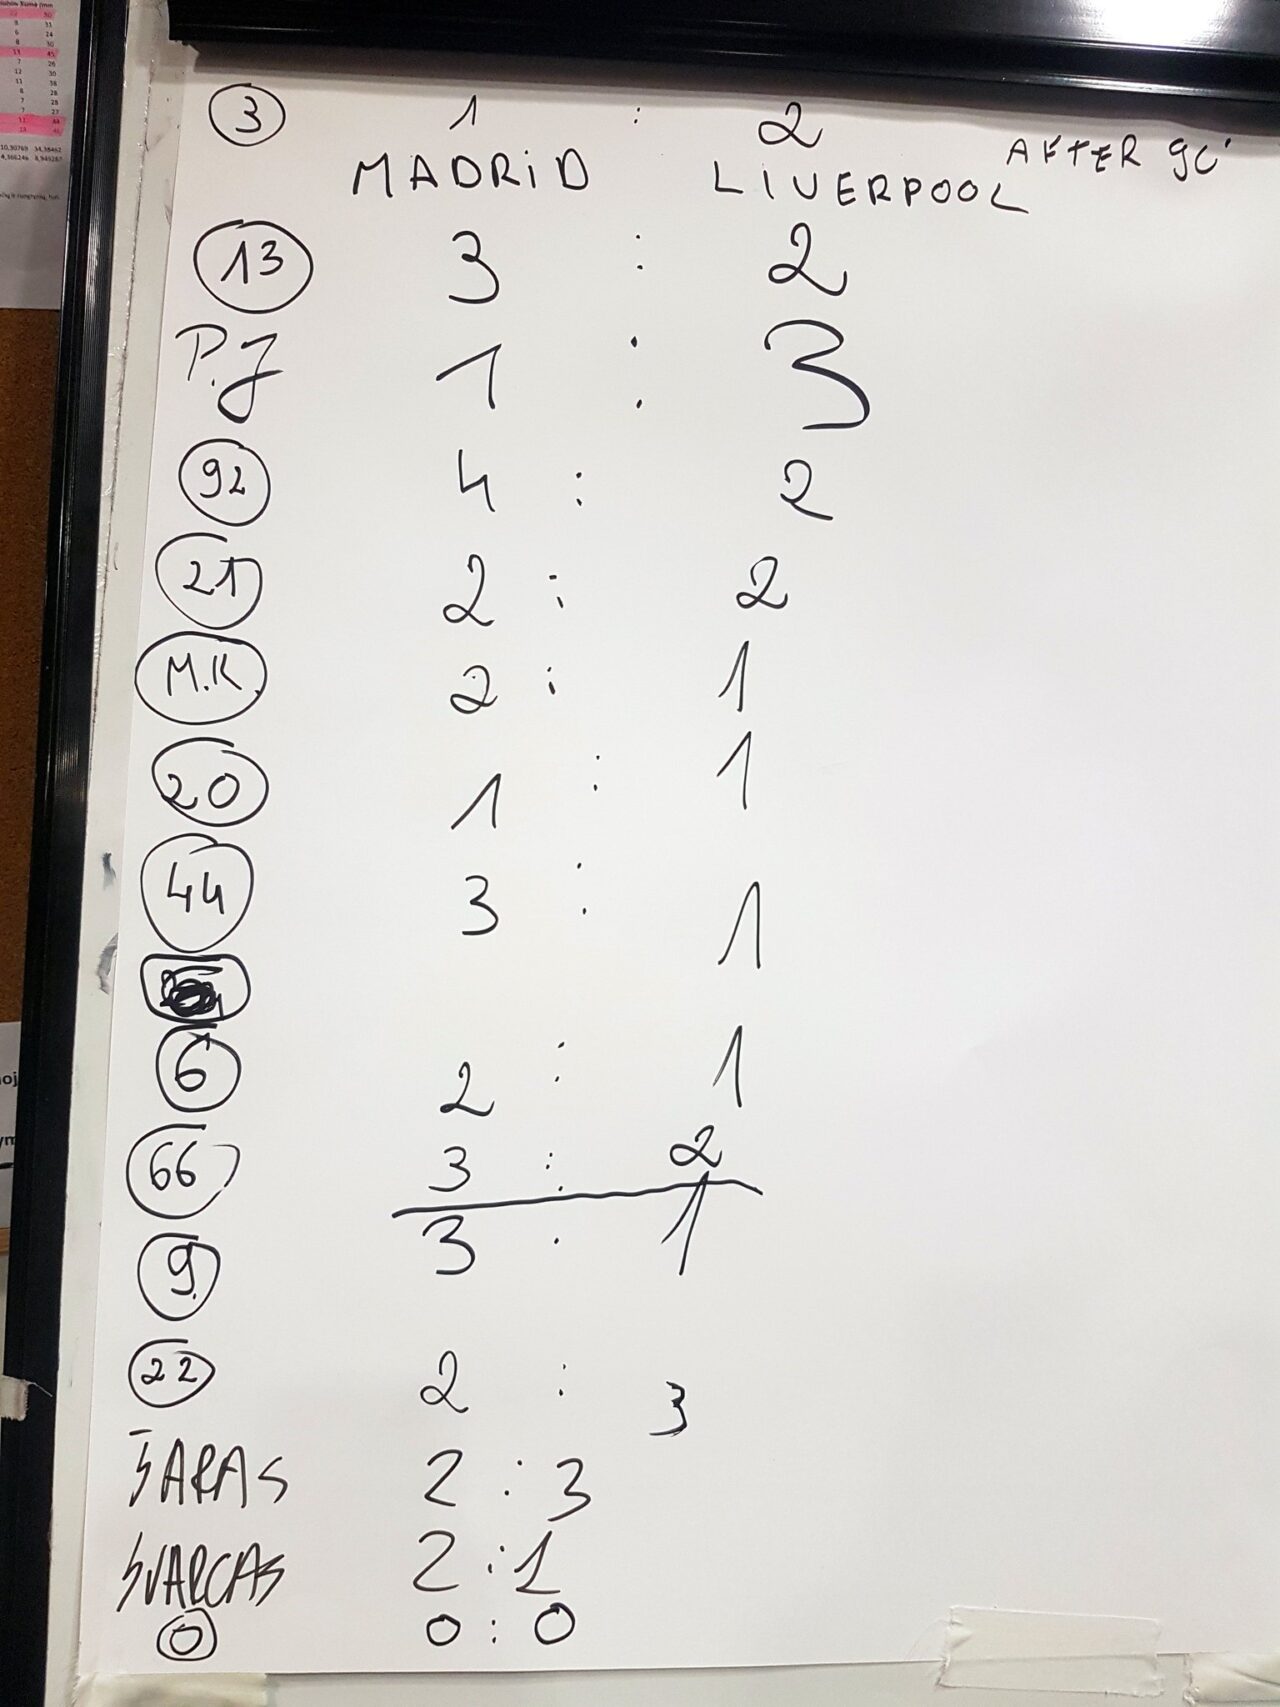 3 1 : 2
MADRID LIVERPOOL AFTER 90'
13 3 : 2
P.J 1 : 3
92 4 : 2
21 2 : 2
M.K. 2 : 1
20 1 : 1
44 3 : 1
6 2 : 1
66 3 : 2
9. 3 : 1
22 2 : 3
ŠARAS 2 : 3
ŠVARCAS 2 : 1
0 0 : 0